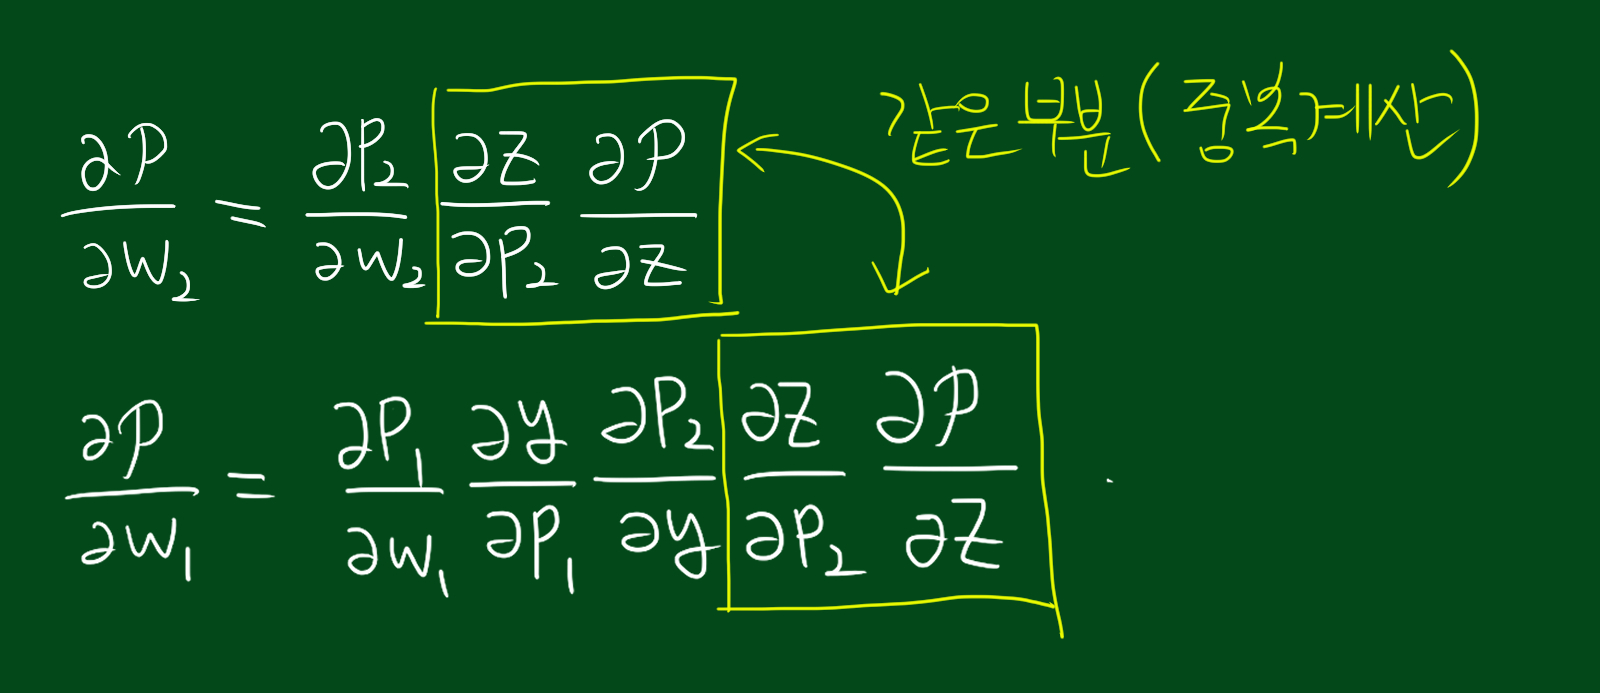 ∂P/∂w₂ = ∂P₂/∂w₂ ∂z/∂P₂ ∂P/∂z
같은 부분 (중복계산)
∂P/∂w₁ = ∂P₁/∂w₁ ∂y/∂P₁ ∂P₂/∂y ∂z/∂P₂ ∂P/∂z